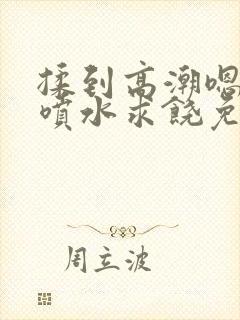 揉到高潮嗯
喷水求饶免
周立波